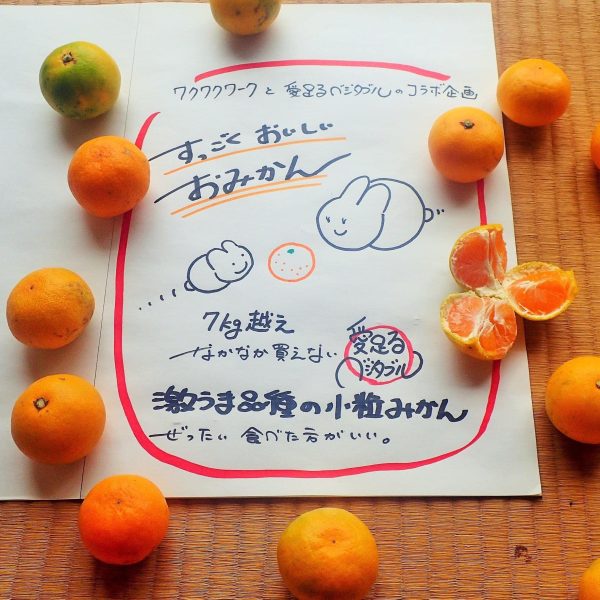 ワクワクワークと 愛足るベジタブルのコラボ企画
すっごくおいしい
おみかん
7kg越え
なかなか買えない
愛足る
ベジタブル
激うま品種の小粒みかん
ぜったい食べた方がいい。